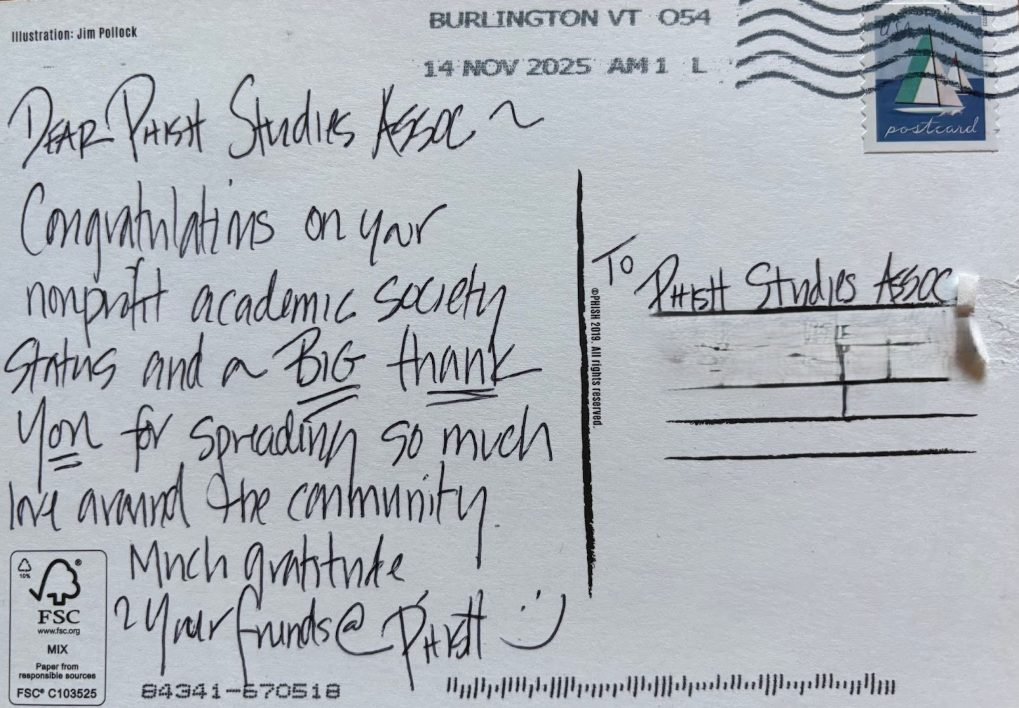 Illustration: Jim Pollock
BURLINGTON VT 054
14 NOV 2025 AM 1 L
USA
postcard
DEAR PHISH Studies Assoc ~
Congratulations on your
nonprofit academic society
status and a BIG thank
you for spreading so much
love around the community.
Much gratitude
~ Your friends @ PHISH :)
TO PHISH Studies Assoc
©PHISH 2019. All rights reserved.
10%
FSC®
www.fsc.org
MIX
Paper from
responsible sources
FSC® C103525
84341-670518